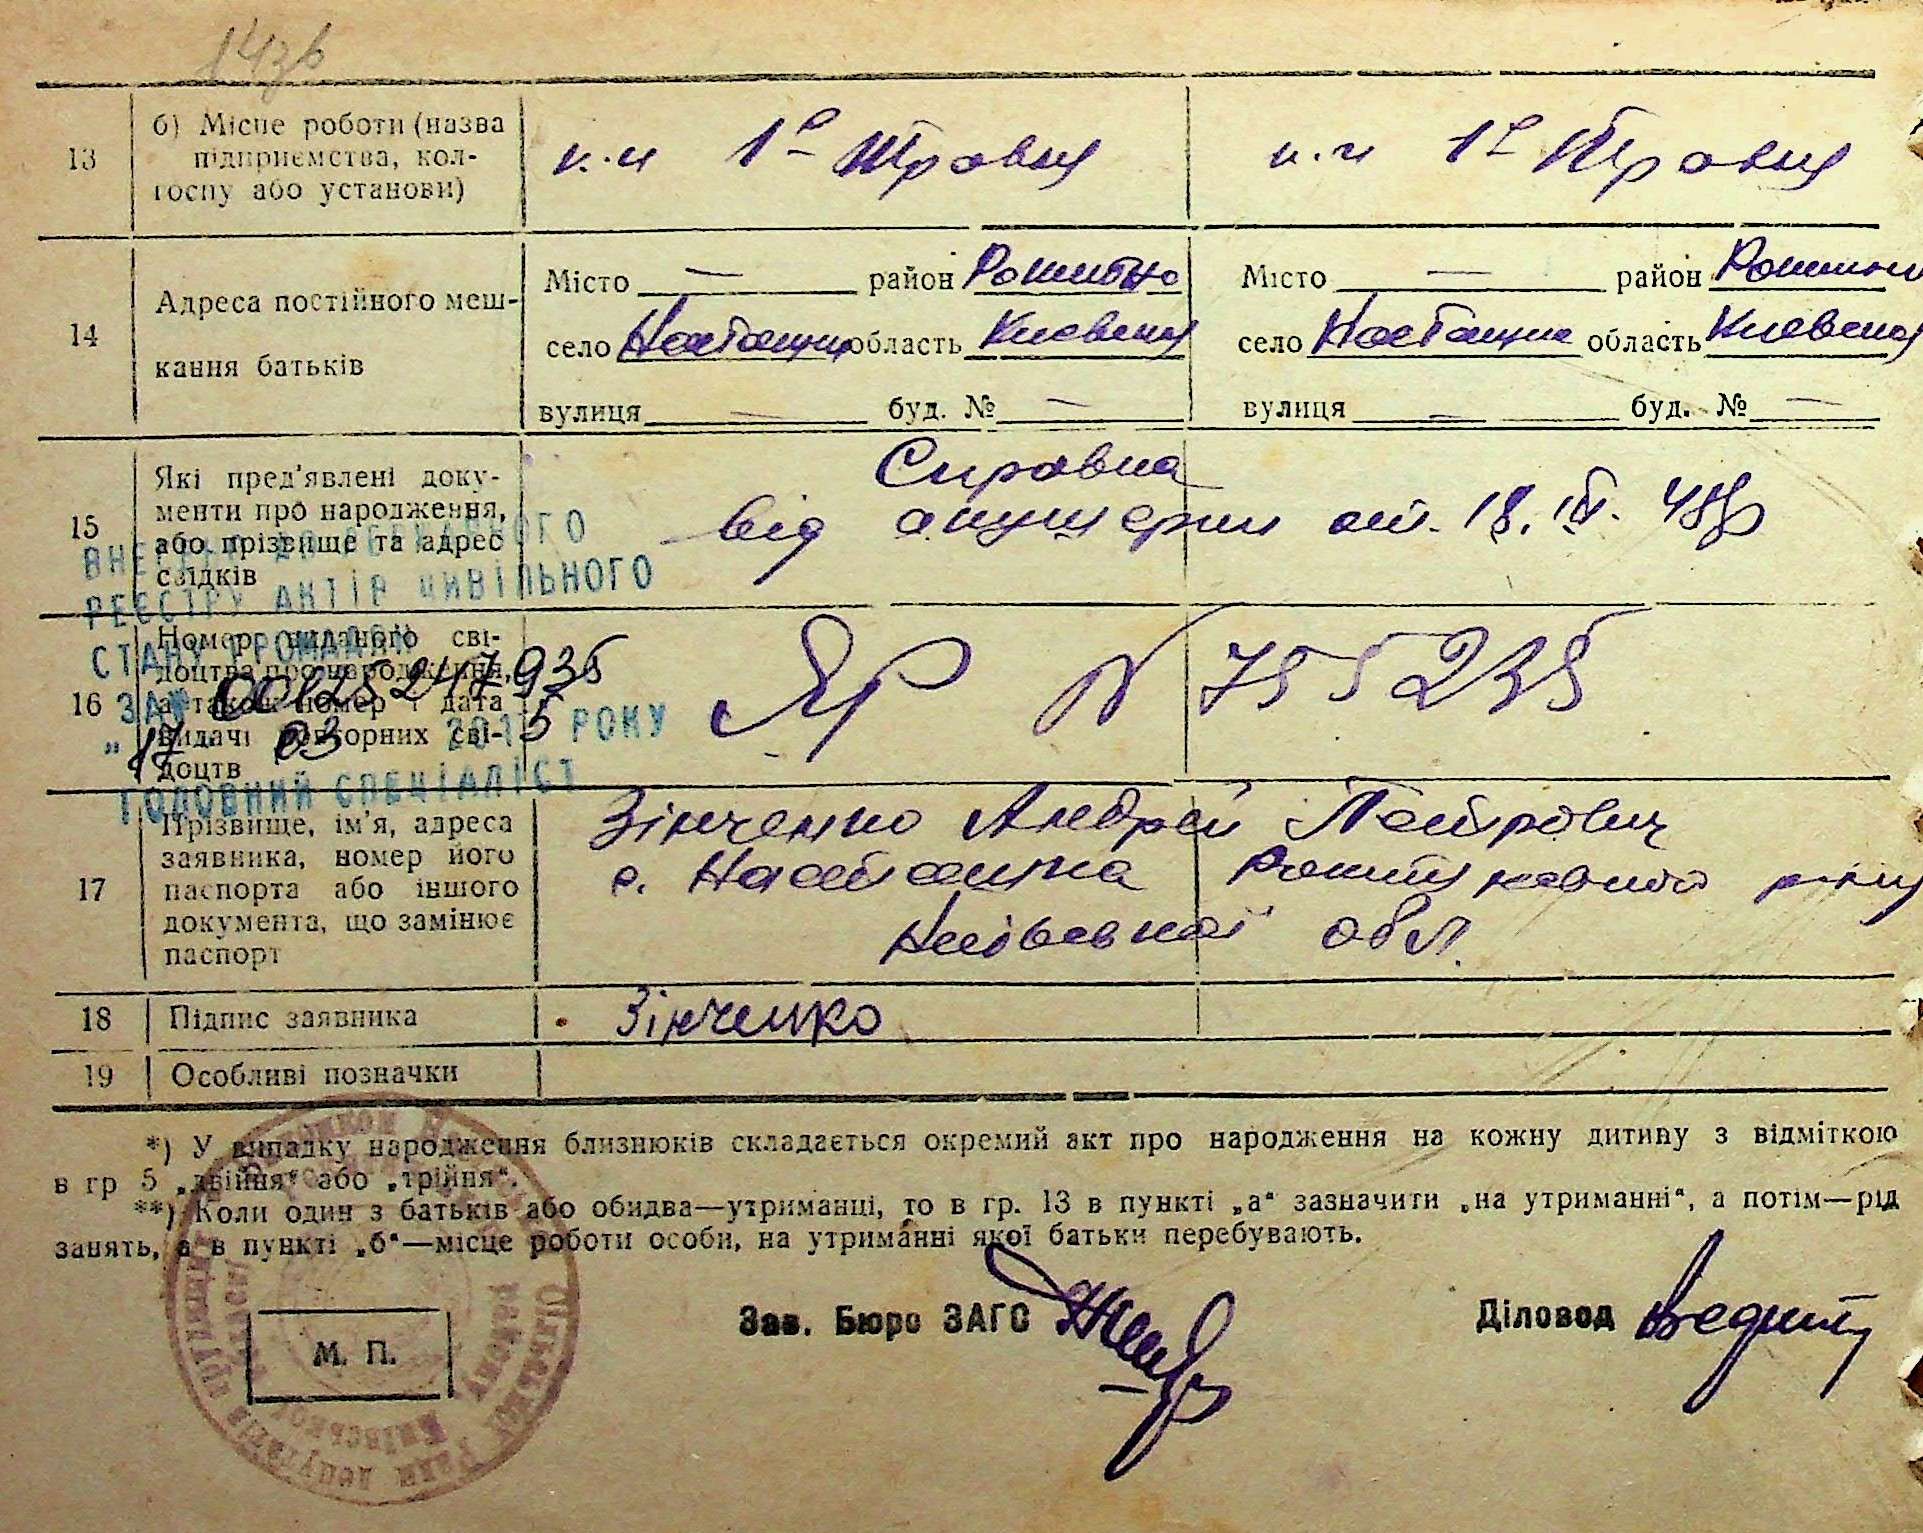 143б
13 б) Місце роботи (назва підприємства, колгоспу або установи)
к-п 1е Травня
к-п 1е Травня
14 Адреса постійного мешкання батьків
Місто — район Рокитно
село Настащка область Киевская
вулиця — буд. № —
Місто — район Рокитно
село Настащка область Киевская
вулиця — буд. № —
15 Які пред'явлені документи про народження, або прізвище та адрес свідків
Справка
від акушерки от. 18. IV. 48 р
ВНЕСЕНО ДО ДЕРЖАВНОГО
РЕЄСТРУ АКТІВ ЦИВІЛЬНОГО
СТАНУ ГРОМАДЯН
ЗА № 00125247935
"17" 03 2015 РОКУ
ГОЛОВНИЙ СПЕЦІАЛІСТ
16 Номер виданого свідоцтва про народження, а також номер і дата видачі повторних свідоцтв
ЯР N 755235
17 Прізвище, ім'я, адреса заявника, номер його паспорта або іншого документа, що замінює паспорт
Зінченко Андрей Петрович
с. Настащка Рокитнянского р-ну
Київської обл.
18 Підпис заявника
Зінченко
19 Особливі позначки
*) У випадку народження близнюків складається окремий акт про народження на кожну дитину з відміткою
в гр 5 „двійня“ або „трійня“.
**) Коли один з батьків або обидва—утриманці, то в гр. 13 в пункті „а“ зазначити „на утриманні“, а потім—рід
занять, а в пункті „б“—місце роботи особи, на утриманні якої батьки перебувають.
Зав. Бюро ЗАГС
Діловод
М. П.